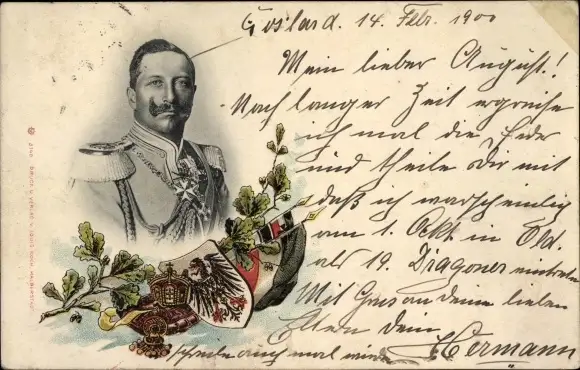 Goslar d. 14. Febr. 1900
Mein lieber August!
Nach langer Zeit ergreife
ich mal die Feder
und theile Dir mit
daß ich warscheinlich
am 1. Okt in Old.
als 19. Dragoner eintrete
Mit Gruss an Deine lieben
Eltern dein
Hermann
schreibe auch mal wieder